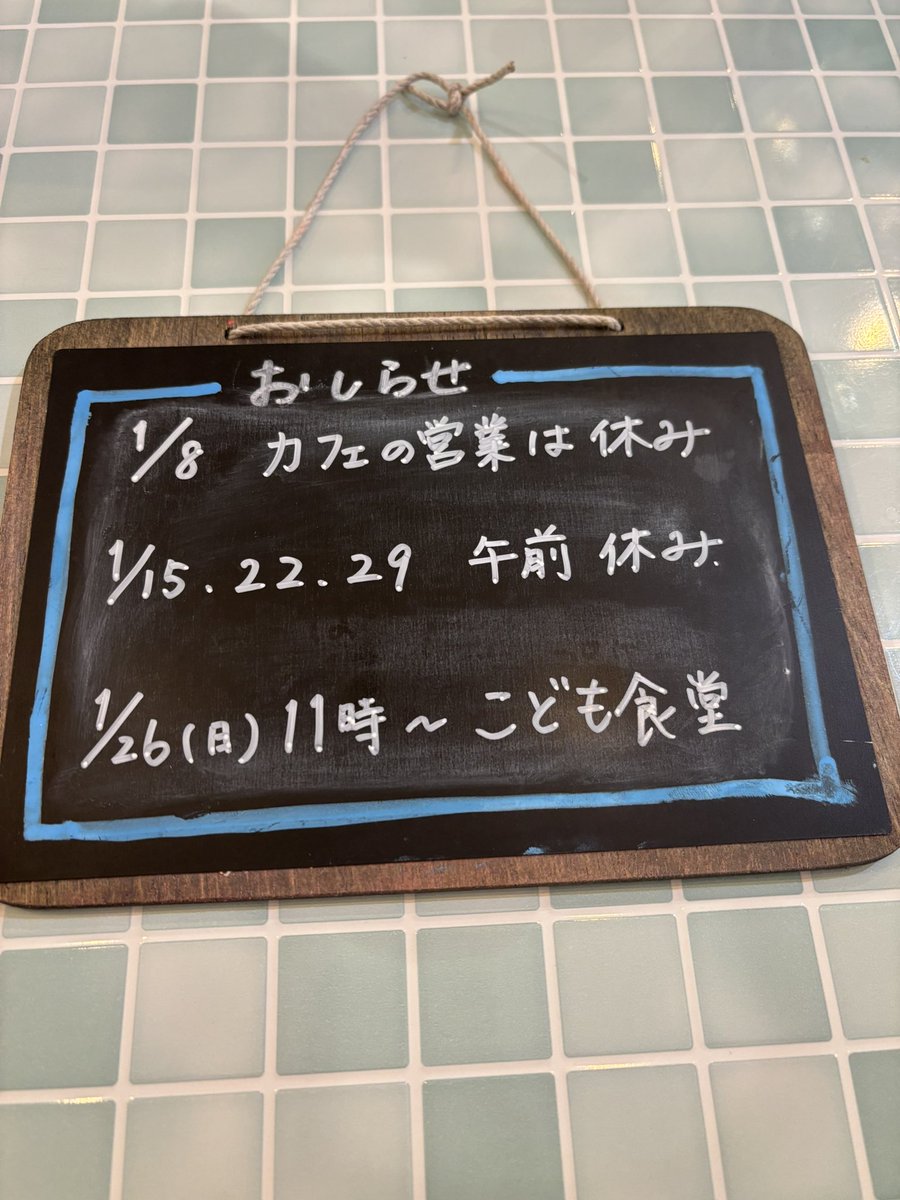 おしらせ
1/8 カフェの営業は休み
1/15.22.29 午前 休み.
1/26(日) 11時〜 こども食堂